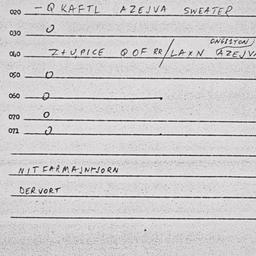 020 - Q KAFTL AZEJVA SWEATER
030 0
040 Z+U,PICE Q OF RR/LAXN AZEJV
050 0
060 0
070 0
071 0
NIT FARMAJNFJORN
DERVORT